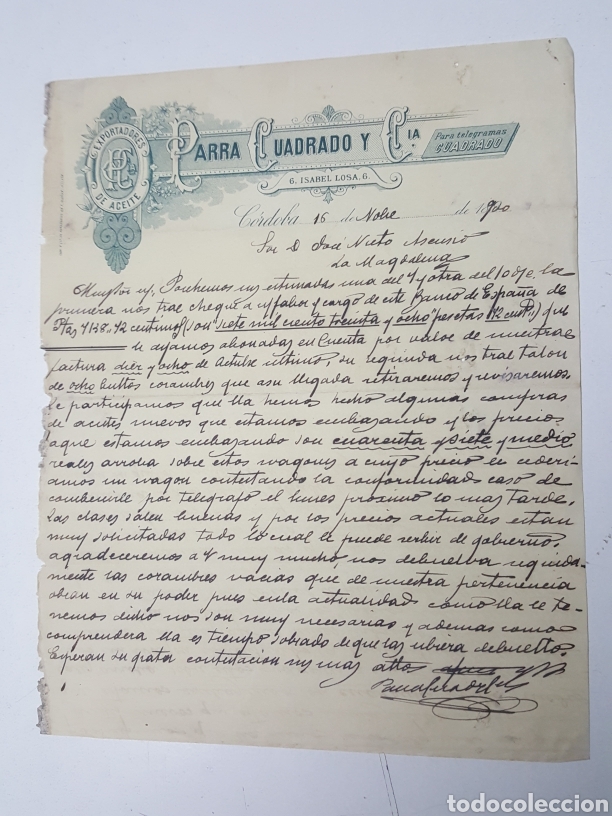 EXPORTADORES
DE ACEITE
PARRA CUADRADO Y CIA.
Para telegramas
CUADRADO
6. ISABEL LOSA. 6.
Córdoba 16 de Nobe de 1920
Sor D. José Nieto Asensio
La Magdalena
Muy Sor ntro. Posehemos sus estimadas una del 4 y otra del 10 de la
primera nos trae cheque a n/fabor y cargo de este Banco de España de
Ptas 7138.42 centimos (son "siete mil ciento treinta y ocho pesetas 42 cents) que
le ajamos abonadas en Cuenta por valor de nuestra
factura diez y ocho de octubre ultimo, su segunda nos trae talon
de ocho bultos corambres que a su llegada retiraremos y revisaremos
le participamos que lla hemos hecho algunas compras
de aceites nuevos que estamos embazando y los precios
aque estamos embazando son cuarenta y siete y medio
reales arroba sobre estos wagones a cuyo precio le cederi-
amos un wagon contestando la conformidad caso de
combenirle por telegrafo el lunes proximo lo mas tarde,
las clases salen buenas y por los precios actuales estan
muy solicitadas todo lo cual le puede serbir de gobierno.
agradeceremos a V muy mucho, nos debuelva seguida-
mente las corambres vacias que de nuestra pertenencia
obran en su poder pues en la actualidad como lla le te-
nemos dicho nos son muy necesarias y ademas como
comprendera lla es tiempo sobrado de que las ubiera debuelto.
Esperan su grata contestacion sus mas attos
todocoleccion